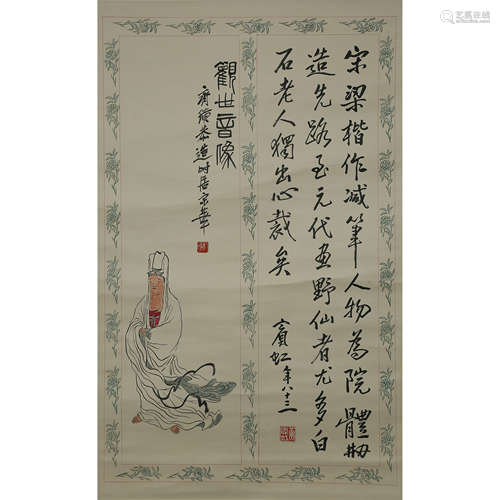 宋梁楷作减筆人物為院體刱
造先路至元代画野仙者尤多白
石老人獨出心裁矣
賓虹年八十三
觀世音像
齊璜恭造時居京華
艺狐在线